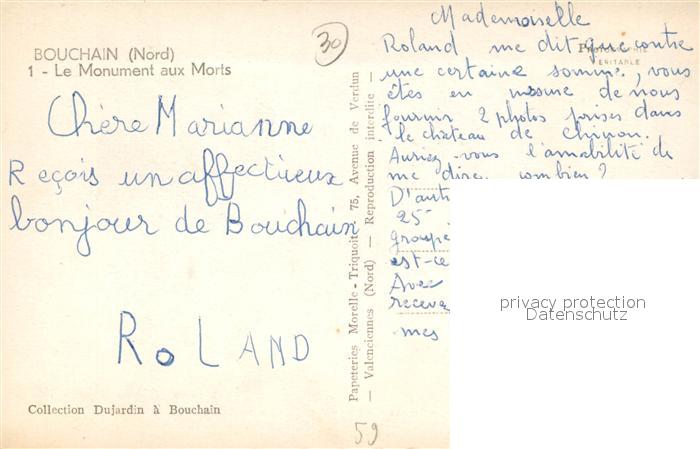 BOUCHAIN (Nord)
1 - Le Monument aux Morts
30
Chère Marianne
Reçois un affectueux
bonjour de Bouchain
RoLAND
Collection Dujardin à Bouchain
59
Papeteries Morelle-Triquoit - 75, Avenue de Verdun
— Valenciennes (Nord) — Reproduction interdite —
VERITABLE
Mademoiselle
Roland me dit que contre
une certaine somme, vous
êtes en mesure de nous
fournir 2 photos prises dans
le château de Chinon.
Auriez-vous l'amabilité de
me dire combien ?
D'aut
25
groupe
est-ce
Avec
receve
mes
privacy protection
Datenschutz